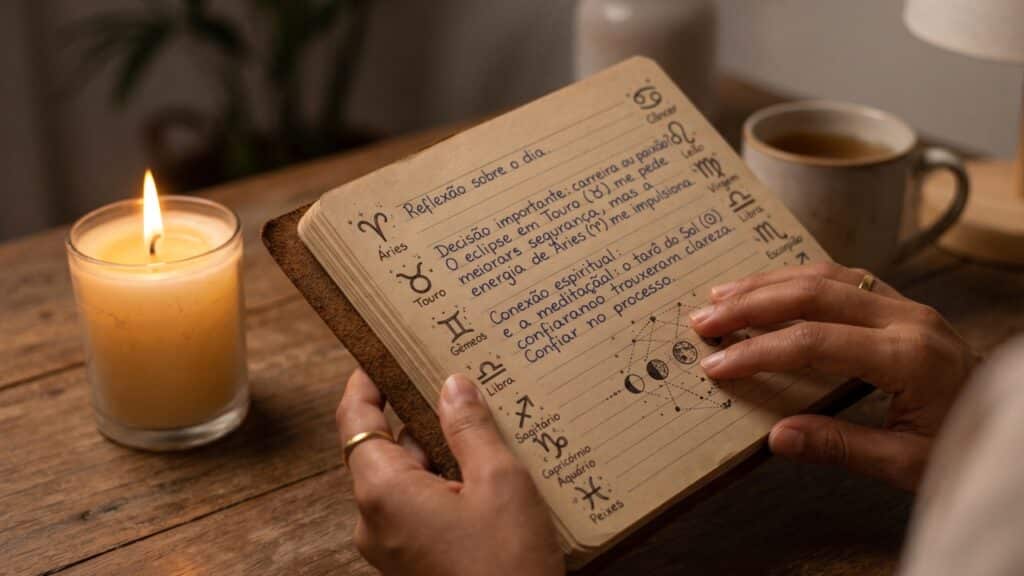 Reflexão sobre o dia.
Decisão importante: carreira ou paixão?
O eclipse em Touro (♉) me pede
meiorars segurança, mas a
energia de Áries (♈) me impulsiona
Conexão espiritual:
e a meditação: o tarô do Sol (☉)
confiaranao trouxeram clareza.
Confiar no processo.
Áries
Touro
Gêmeos
Libra
Sagitário
Capricórnio
Aquário
Peixes
Câncer
Leão
Virgem
Libra
Escorpião